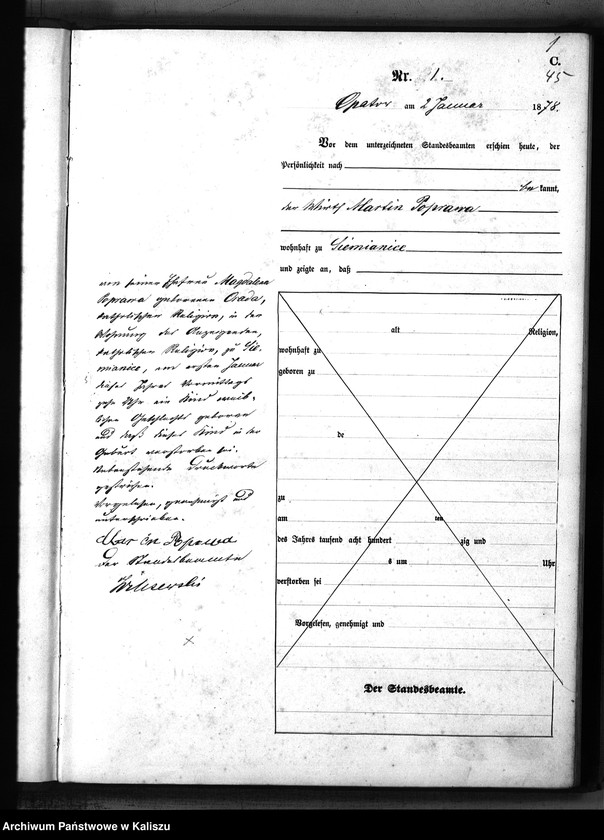 1
C.
45
Nr. 1.
Opatow am 2 Januar 1878.
Vor dem unterzeichneten Standesbeamten erschien heute, der
Persönlichkeit nach
be kannt,
der Wirth Martin Poprawa
wohnhaft zu Siemianice
und zeigte an, daß
von seiner Ehefrau Magdalena
Poprawa geborenen Orada,
katholischer Religion, in der
Wohnung des Anzeigenden,
katholischer Religion, zu Sie-
mianice, am ersten Januar
dieses Jahres Vormittags
Uhr ein Kind weib-
lichen Geschlechts geboren
und daß dieses Kind in der
Geburt verstorben sei.
Nebenstehende Druckworte
gestrichen.
Vorgelesen, genehmigt und
unterschrieben.
Mar cin Poprawa
Der Standesbeamte
alt Religion,
wohnhaft zu
geboren zu
de
zu
am ten
des Jahrs tausend acht hundert zig und
s um Uhr
verstorben sei
Vorgelesen, genehmigt und
Der Standesbeamte.
Archiwum Państwowe w Kaliszu